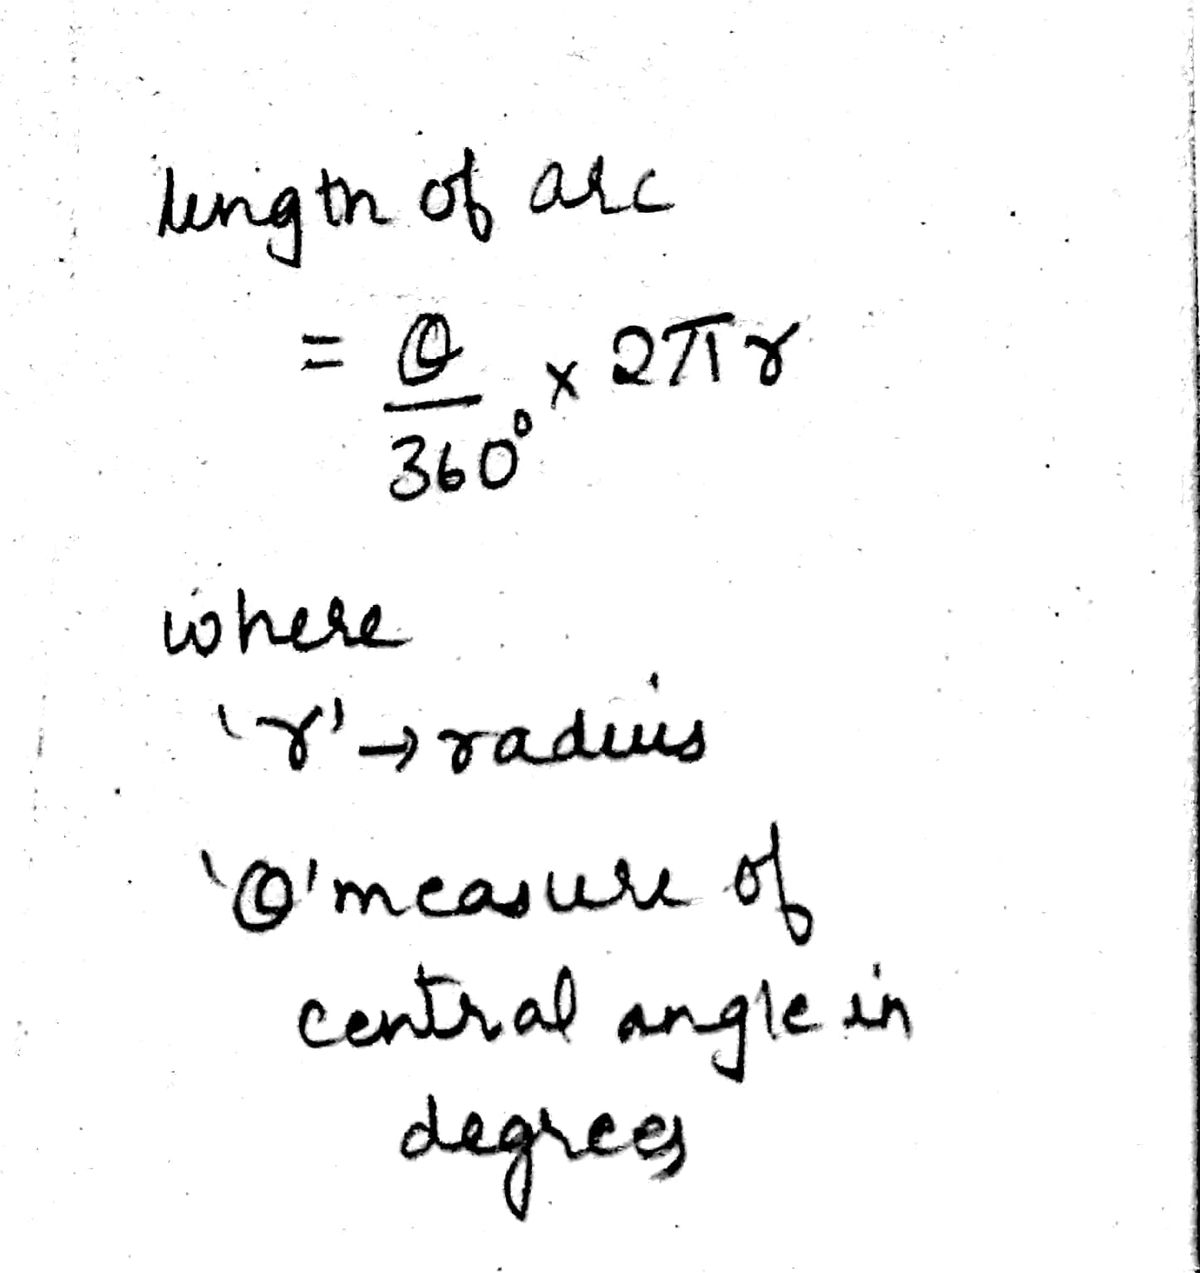 length of arc
= θ/360° × 2πr
where
'r' → radius
'θ' measure of
central angle in
degrees